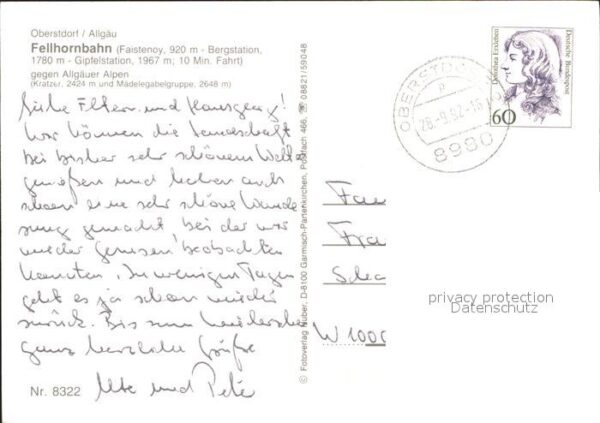 Oberstdorf / Allgäu
Fellhornbahn (Faistenoy, 920 m - Bergstation,
1780 m - Gipfelstation, 1967 m; 10 Min. Fahrt)
gegen Allgäuer Alpen
(Kratzer, 2424 m und Mädelegabelgruppe, 2648 m)
Liebe Eltern und Hansgeorg!
Wir können die Landschaft
bei bisher sehr schönem Wetter
genießen und haben auch
schon eine sehr schöne Wande
rung gemacht, bei der wir
wieder Gemsen beobachten
konnten. In wenigen Tagen
geht es ja schon wieder
zurück. Bis zum
ganz herzliche Grüße
Ute und Peter
Nr. 8322
© Fotoverlag Huber, D-8100 Garmisch-Partenkirchen, Postfach 466, ☎ 08821/59048
OBERSTDORF
p
28.-9.92-16
8980
Dorothea Erxleben
Deutsche Bundespost
60
Fam
Fra
W 1000
privacy protection
Datenschutz